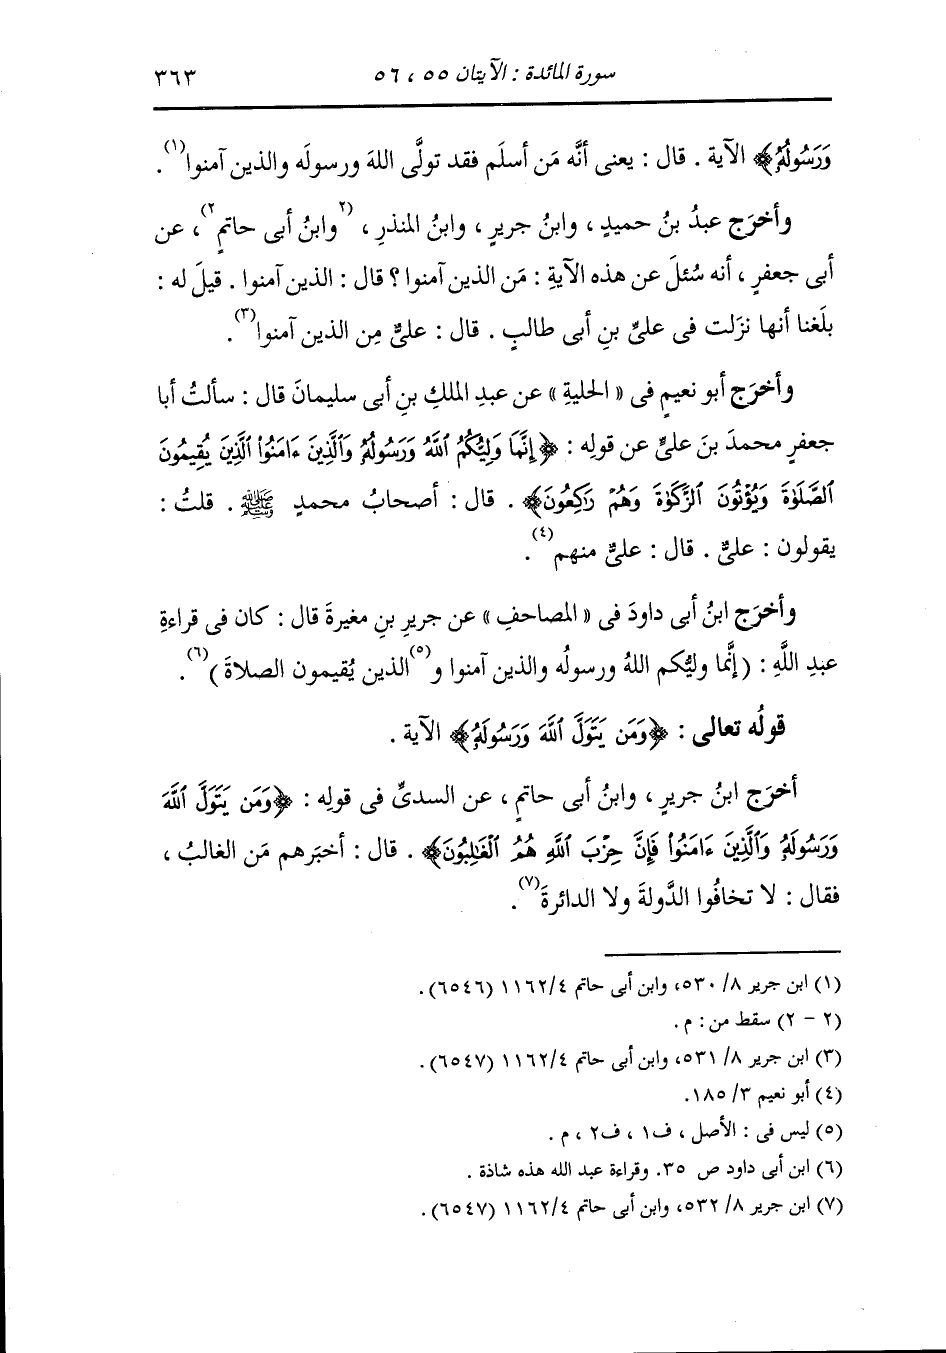 سورة المائدة : الآيتان ٥٥ ، ٥٦ ٣٦٣
وَرَسُولُهُۥ﴾ الآية . قال : يعنى أنَّه مَن أسلَم فقد تولَّى اللهَ ورسولَه والذين آمنوا(١) .
وأخرَج عبدُ بنُ حميدٍ ، وابنُ جريرٍ ، وابنُ المنذرِ ، (٢وابنُ أبى حاتمٍ٢) ، عن
أبى جعفرٍ ، أنه سُئلَ عن هذه الآيةِ : مَن الذين آمنوا ؟ قال : الذين آمنوا . قيلَ له :
بلَغنا أنها نزَلت فى علىِّ بنِ أبى طالبٍ . قال : علىٌّ مِن الذين آمنوا(٣) .
وأخرَج أبو نعيمٍ فى « الحليةِ » عن عبدِ الملكِ بنِ أبى سليمانَ قال : سألتُ أبا
جعفرٍ محمدَ بنَ علىٍّ عن قولِه : ﴿إِنَّمَا وَلِيُّكُمُ ٱللَّهُ وَرَسُولُهُۥ وَٱلَّذِينَ ءَامَنُوا۟ ٱلَّذِينَ يُقِيمُونَ
ٱلصَّلَوٰةَ وَيُؤْتُونَ ٱلزَّكَوٰةَ وَهُمْ رَٰكِعُونَ﴾ . قال : أصحابُ محمدٍ ﷺ . قلتُ :
يقولون : علىٌّ . قال : علىٌّ منهم(٤) .
وأخرَج ابنُ أبى داودَ فى « المصاحفِ » عن جريرِ بنِ مغيرةَ قال : كان فى قراءةِ
عبدِ اللَّهِ : ( إنَّما وليُّكم اللهُ ورسولُه والذين آمنوا و(٥)الذين يُقيمون الصلاةَ )(٦) .
قولُه تعالى : ﴿وَمَن يَتَوَلَّ ٱللَّهَ وَرَسُولَهُۥ﴾ الآية .
أخرَج ابنُ جريرٍ ، وابنُ أبى حاتمٍ ، عن السدىِّ فى قولِه : ﴿وَمَن يَتَوَلَّ ٱللَّهَ
وَرَسُولَهُۥ وَٱلَّذِينَ ءَامَنُوا۟ فَإِنَّ حِزْبَ ٱللَّهِ هُمُ ٱلْغَٰلِبُونَ﴾ . قال : أخبَرهم مَن الغالبُ ،
فقال : لا تخافُوا الدَّولةَ ولا الدائرةَ(٧) .
(١) ابن جرير ٨/ ٥٣٠، وابن أبى حاتم ١١٦٢/٤ (٦٥٤٦).
(٢ - ٢) سقط من : م .
(٣) ابن جرير ٨/ ٥٣١، وابن أبى حاتم ١١٦٢/٤ (٦٥٤٧).
(٤) أبو نعيم ٣/ ١٨٥.
(٥) ليس فى : الأصل ، ف١ ، ف٢ ، م .
(٦) ابن أبى داود ص ٣٥. وقراءة عبد الله هذه شاذة .
(٧) ابن جرير ٨/ ٥٣٢، وابن أبى حاتم ١١٦٢/٤ (٦٥٤٧).